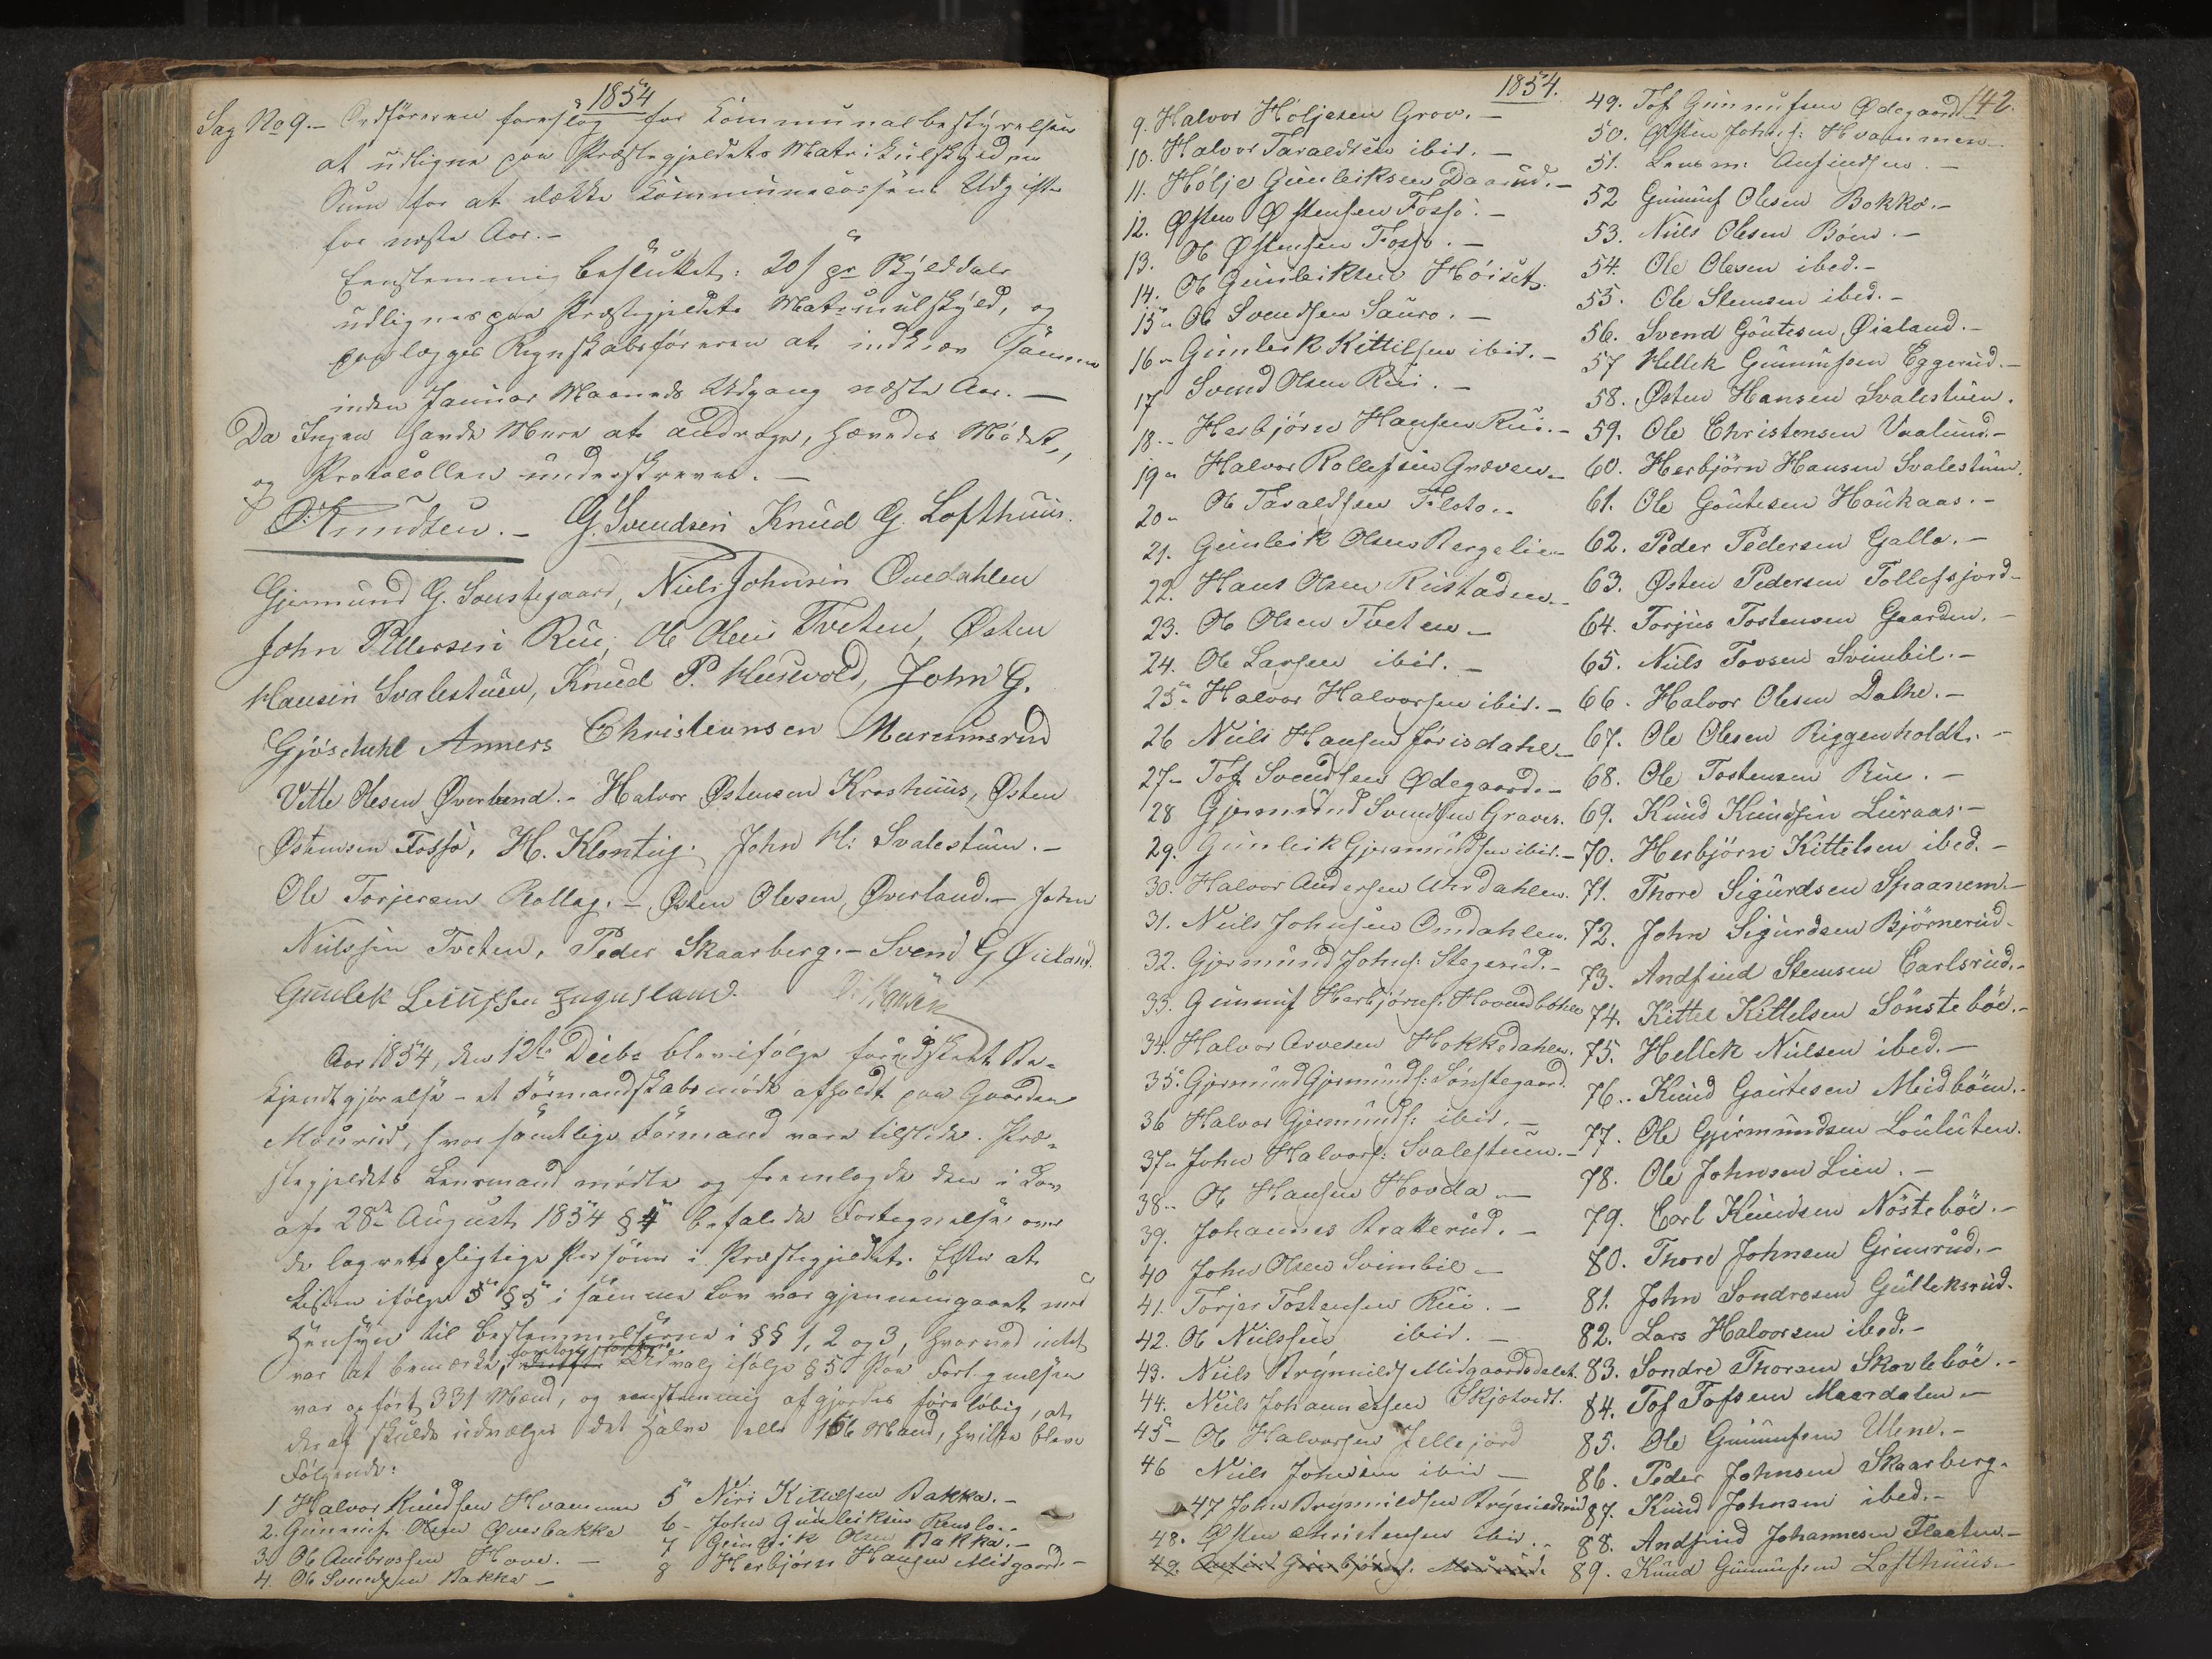 1854
Sag No 9.- Ordføreren foreslog for Communalbestyrelsen
at udligne paa Præstegjeldets Matrikulskyld en
Sum for at dække Communecassens Udgifter
for næste Aar.-
Eenstemmig besluttet: 20 s pr Skylddaler
udlignes paa Præstegjeldets Matriculskyld, og
paalægges Regnskabsføreren at indkræve samme
inden Januar Maaneds Udgang næste Aar. -
Da Ingen havde Mere at andrage, hævedes Mødet,
og Protocollen underskrevet. -
O Knudsen. - G. Svendsen Knud G. Lofthuus.
Gjermund G. Sønstegaard, Niels Johnsen Omdahlen
John Pettersen Rue, Ole Olsen Tveten, Østen
Hansen Svalestuen, Knud P. Husevold, John G.
Gjøsdahl Anners Christiansen Muremsrud
Vetle Olesen Øverland. - Halvor Østensen Kroshuus, Østen
Østensen Fossø, H. Klonteig. John H: Svalestuen. -
Ole Torjersen Rollag. - Østen Olesen, Øverland. - John
Nielssen Tveten, Peder Skaarberg. - Svend G Øieland.
Gunlek
Aar 1854, den 12te Decbr blev ifølge forudskeet Be-
kjendtgjørelse - et Formandskabsmøde afholdt paa Gaarden
Mourud, hvor samtlige Formænd vare tilstede. Præ-
stegjeldets Lensmand mødte og fremlagde den i Lov
af 28de August 1854 § 4 befalede Fortegnelse over
de lagretspligtige Personer i Præstegjeldet. Efter at
Listen ifølge § 5 i samme Lov var gjennemgaaet med
Hensyn til Bestemmelserne i §§ 1, 2 og 3, hvorved intet
var at bemærke, Udvalg ifølge § 5. Paa Fortegnelsen
var opført 331 Mænd, og eenstemmig afgjordes foreløbig, at
deraf skulde udvælges det halve eller 166 Mænd, hvilke bleve
Følgende:
1 Halvor Knudsen Hvammen
2. Gunnuf Olsen Øverbakke
3. Ole Ambrossen Hove. -
4. Ole Svendsen Bakke -
5 Niri Kittilsen Bakka. -
6 - John Gunleiksen Renslo. -
7 Gunleik Olsen Bakka. -
8 Herbjørn Hansen Midgaard. -
1854.
9. Halvor Høljesen Grov. -
10. Halvor Taraldsen ibid. -
11. Hølje Gunleiksen Daarud. -
12. Østen Østensen Fossø. -
13. Ole Østensen Fossø. -
14. Ole Gunleiksen Høiset.
15 - Ole Svendsen Sauro. -
16 - Gunleik Kittilsen ibid. -
17 Svend Olsen Rui. -
18.. Herbjørn Hansen Rui. -
19 - Halvor Rollefsen Græven -
20 - Ole Taraldsen Floto. -
21. Gunleik Olsen Bergelien
22. Hans Olsen Rustaden. -
23. Ole Olsen Tveten -
24. Ole Larsen ibid. -
25 - Halvor Halvorsen ibid. -
26 Niels Hansen Jørisdahl -
27 - Tof Svendsen Ødegaard. -
28 Gjermund Svendsen Graver.
29. Gunleik Gjermundsen ibid. -
30. Halvor Andersen Uhrdahlen.
31. Niels Johnsen Omdahlen.
32. Gjermund Johns: Stegerud. -
33. Gunnuf Herbjørns:
34. Halvor Arvesen Hokkedahlen.
35. Gjermund Gjermunds: Sønstegaard.
36 Halvor Gjermunds: ibid. -
37 - John Halvors: Svalestuen. -
38.. Ole Hansen Hovda -
39. Johannes Brakerud. -
40 John Olsen Svimbil -
41. Torjer Tostensen Rui. -
42. Ole Nielssen ibid. -
43. Niels Brynnilds Midgaardsdalet.
44. Niels Johannessen Skjotvedt.
45 - Ole Halvorsen Jellejord
46 Niels Johnsen ibid -
47 John Brynnildsen Brynnildsrud
48. Østen Christensen ibid. -
49.
142.
49. Tof Gunnufsen Ødegaard
50. Østen Johns: Hvammen -
51. Lensm: Anfindsen -
52 Gunnuf Olesen Bakka. -
53. Niels Olesen Bøen. -
54. Ole Olesen ibed. -
55. Ole Stensen ibed. -
56. Svend Goutesen Øialand. -
57 Hellek Gunnufsen Eggerud. -
58. Østen Hansen Svalestuen.
59. Ole Christensen Vaalund -
60. Herbjørn Hansen Svalestuen.
61. Ole Goutesen Haukaas. -
62. Peder Pedersen Galla. -
63. Østen Pedersen Tollefsjord -
64. Torjus Tostensen Gaarden. -
65. Niels Tovsen Svimbil. -
66. Halvor Olesen Dalhe. -
67. Ole Olesen Riggenholdt. -
68. Ole Tostensen Rue. -
69. Knud Knudsen Luraas. -
70. Herbjørn Kittelsen ibed. -
71. Thore Sigurdsen Spaanem -
72. John Sigurdsen Bjørnerud -
73. Andfind Stensen Carlsrud. -
74. Kittel Kittelsen Sønstebøe. -
75. Hellek Nielsen ibed. -
76.. Knud Goutesen Meidbøen. -
77. Ole Gjermundsen Louluten.
78. Ole Johnsen Lien. -
79. Carl Knudsen Nöstebøe. -
80. Thore Johnsen Grimrud. -
81. John Sondresen Gulleksrud.
82. Lars Halvorsen ibed. -
83. Sondre Thorsen Skovlebøe. -
84. Tof Tofsen Maardalen -
85. Ole Gunnufsen Ulene. -
86. Peder Johnsen Skaarberg.
87. Knud Johnsen ibed. -
88. Andfind Johannesen Flaatin. -
89. Knud Gunnufsen Lofthuus. -